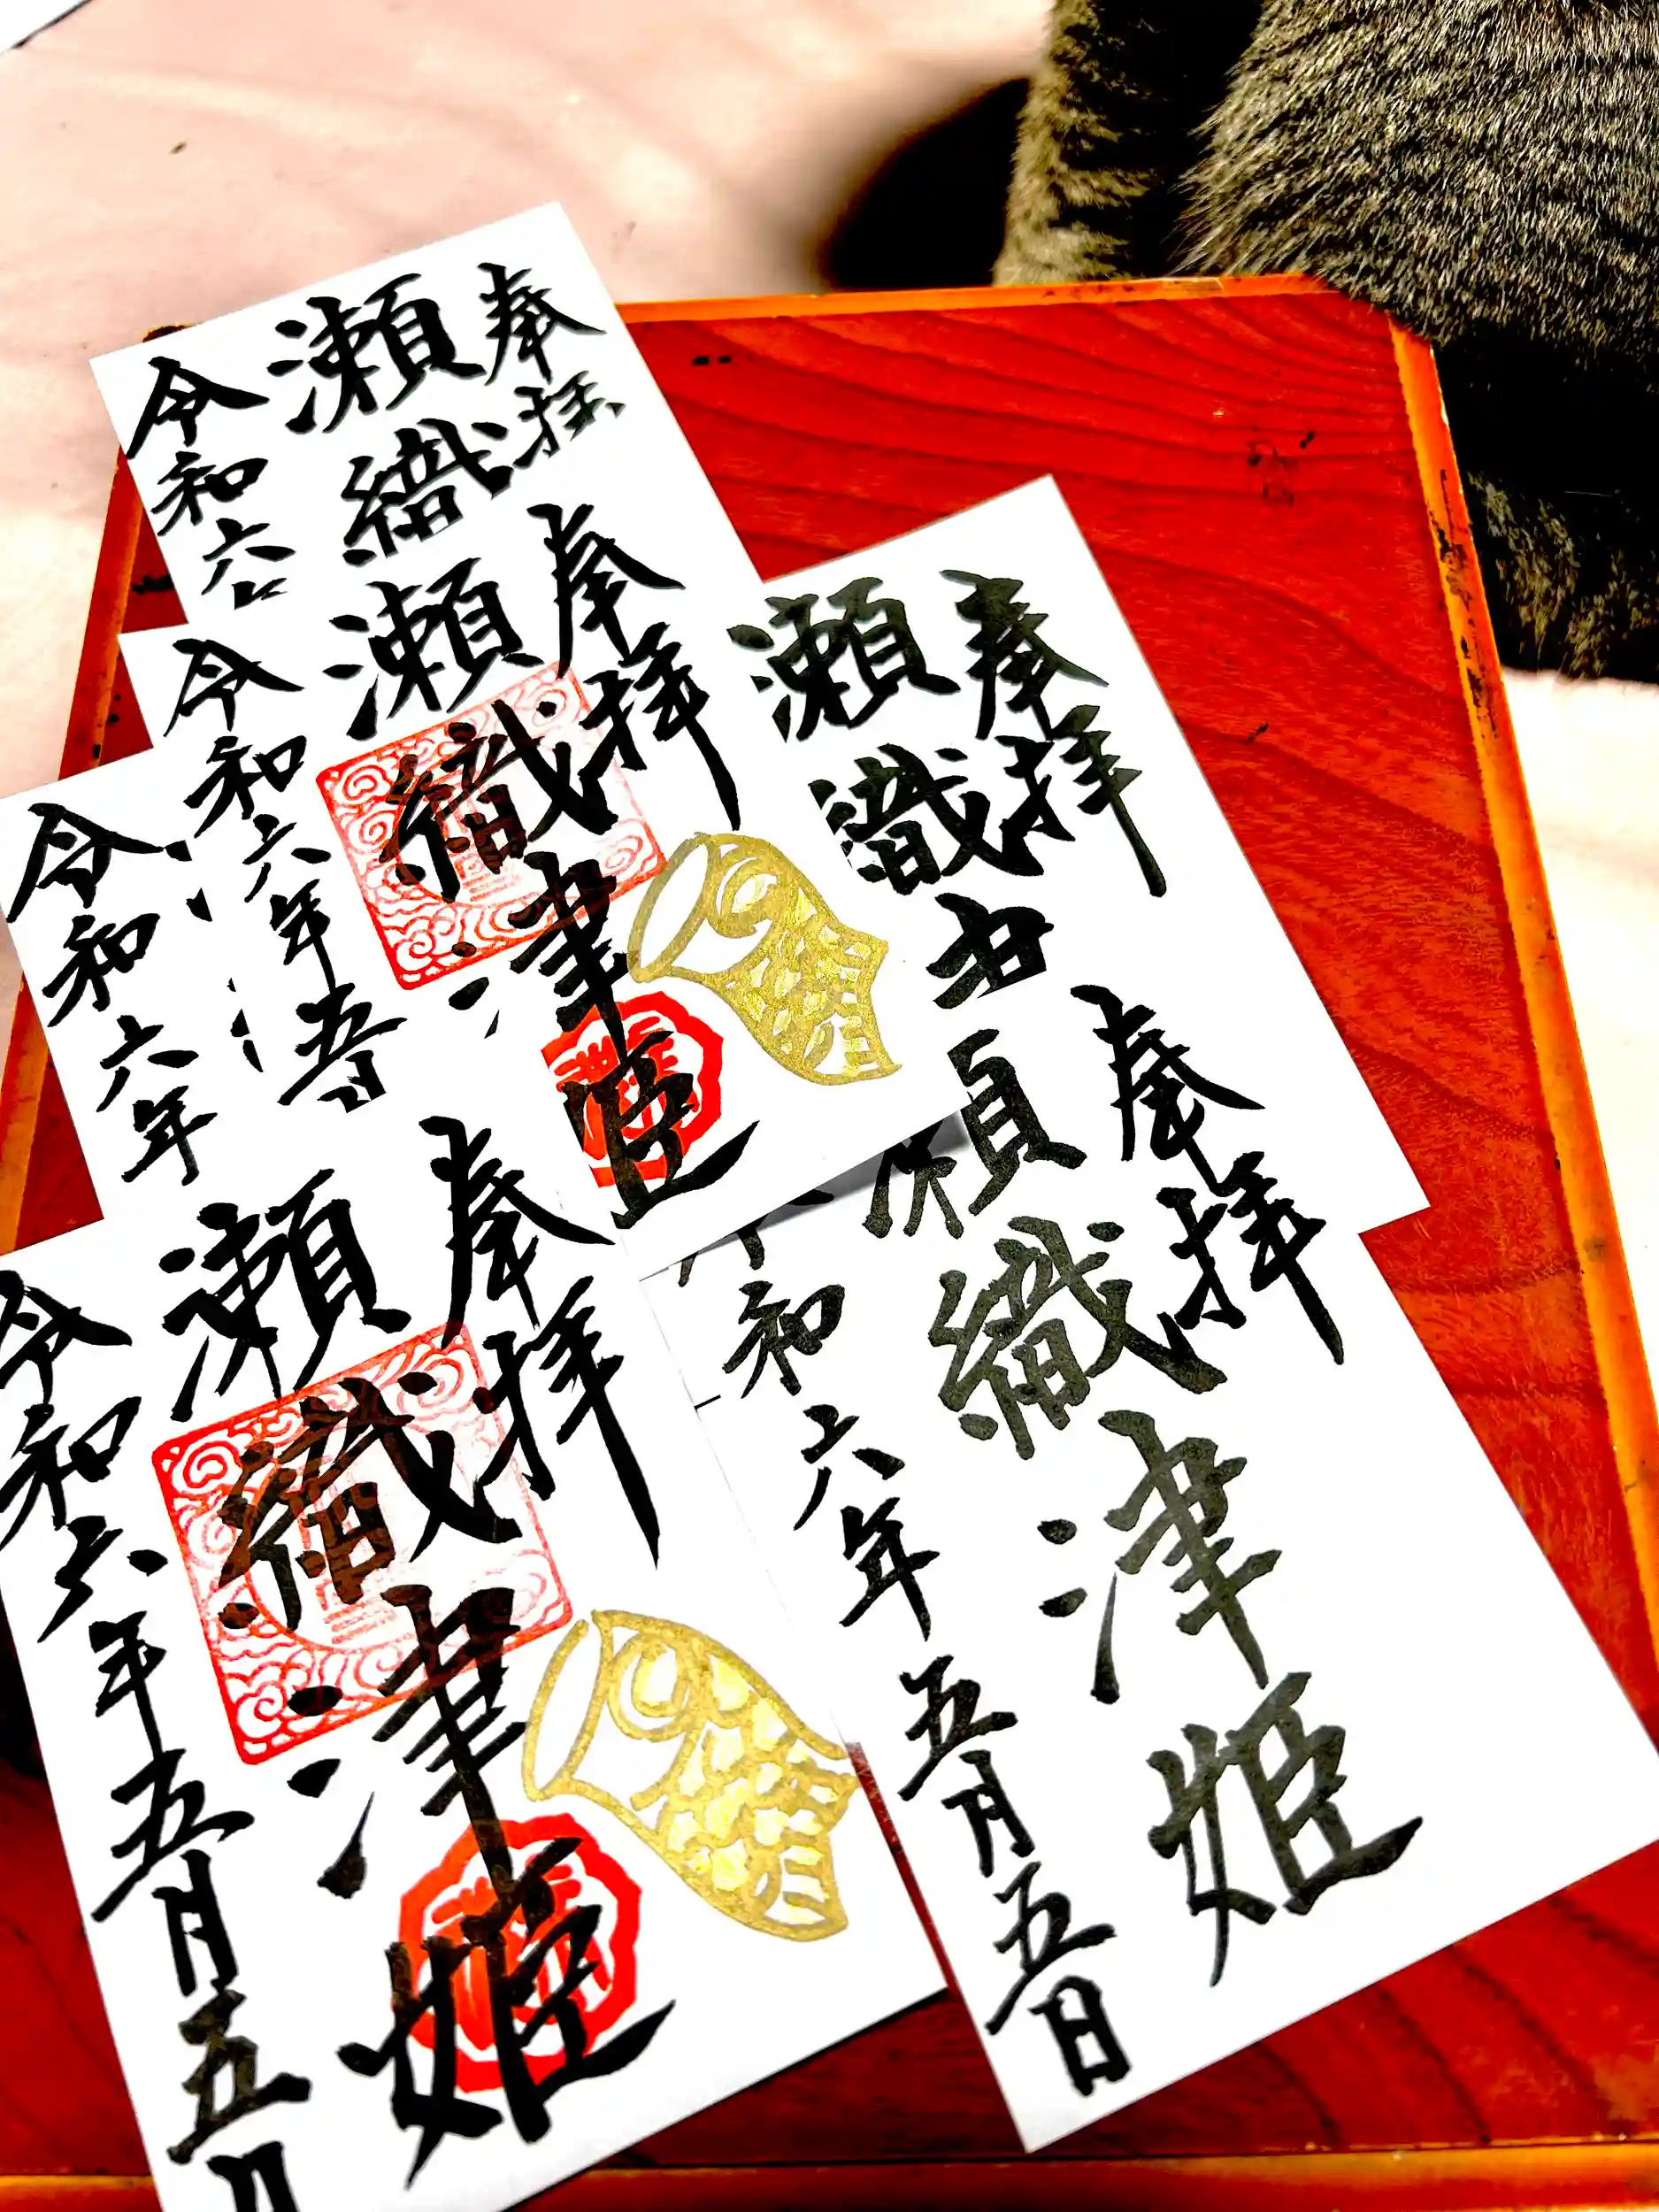 奉拝
瀬織
令和六
奉拝
瀬織津姫
令和六年五月
奉拝
瀬織
令和六年
奉拝
瀬織津姫
令和六年五月五日
奉拝
瀬織津姫
令和六年五月五日